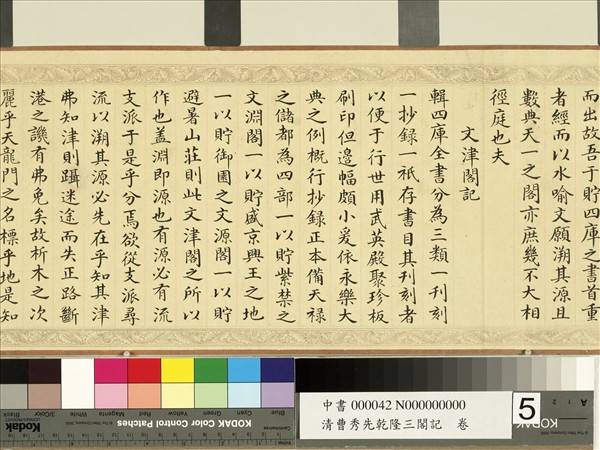 而出故吾于貯四庫之書首重
者經而以水喻文願溯其源且
數典天一之閣亦庶幾不大相
徑庭也夫
文津閣記
輯四庫全書分為三類一刊刻
一抄錄一祇存書目其刊刻者
以便于行世用武英殿聚珍板
刷印但邊幅頗小爰依永樂大
典之例概行抄錄正本備天祿
之儲都為四部一以貯紫禁之
文淵閣一以貯盛京興王之地
一以貯御園之文源閣一以貯
避暑山莊則此文津閣之所以
作也蓋淵即源也有源必有流
支派于是乎分焉欲從支派尋
流以溯其源必先在乎知其津
弗知津則躡迷途而失正路斷
港之譏有弗免矣故析木之次
麗乎天龍門之名標乎地是知
Blue
Cyan
Green
Yellow
Red
Magenta
White
3/Color
Black
KODAK Color Control Patches
Kodak
中書 000042 N000000000
清曹秀先乾隆三閣記 卷
5
A 1 2
KODAK